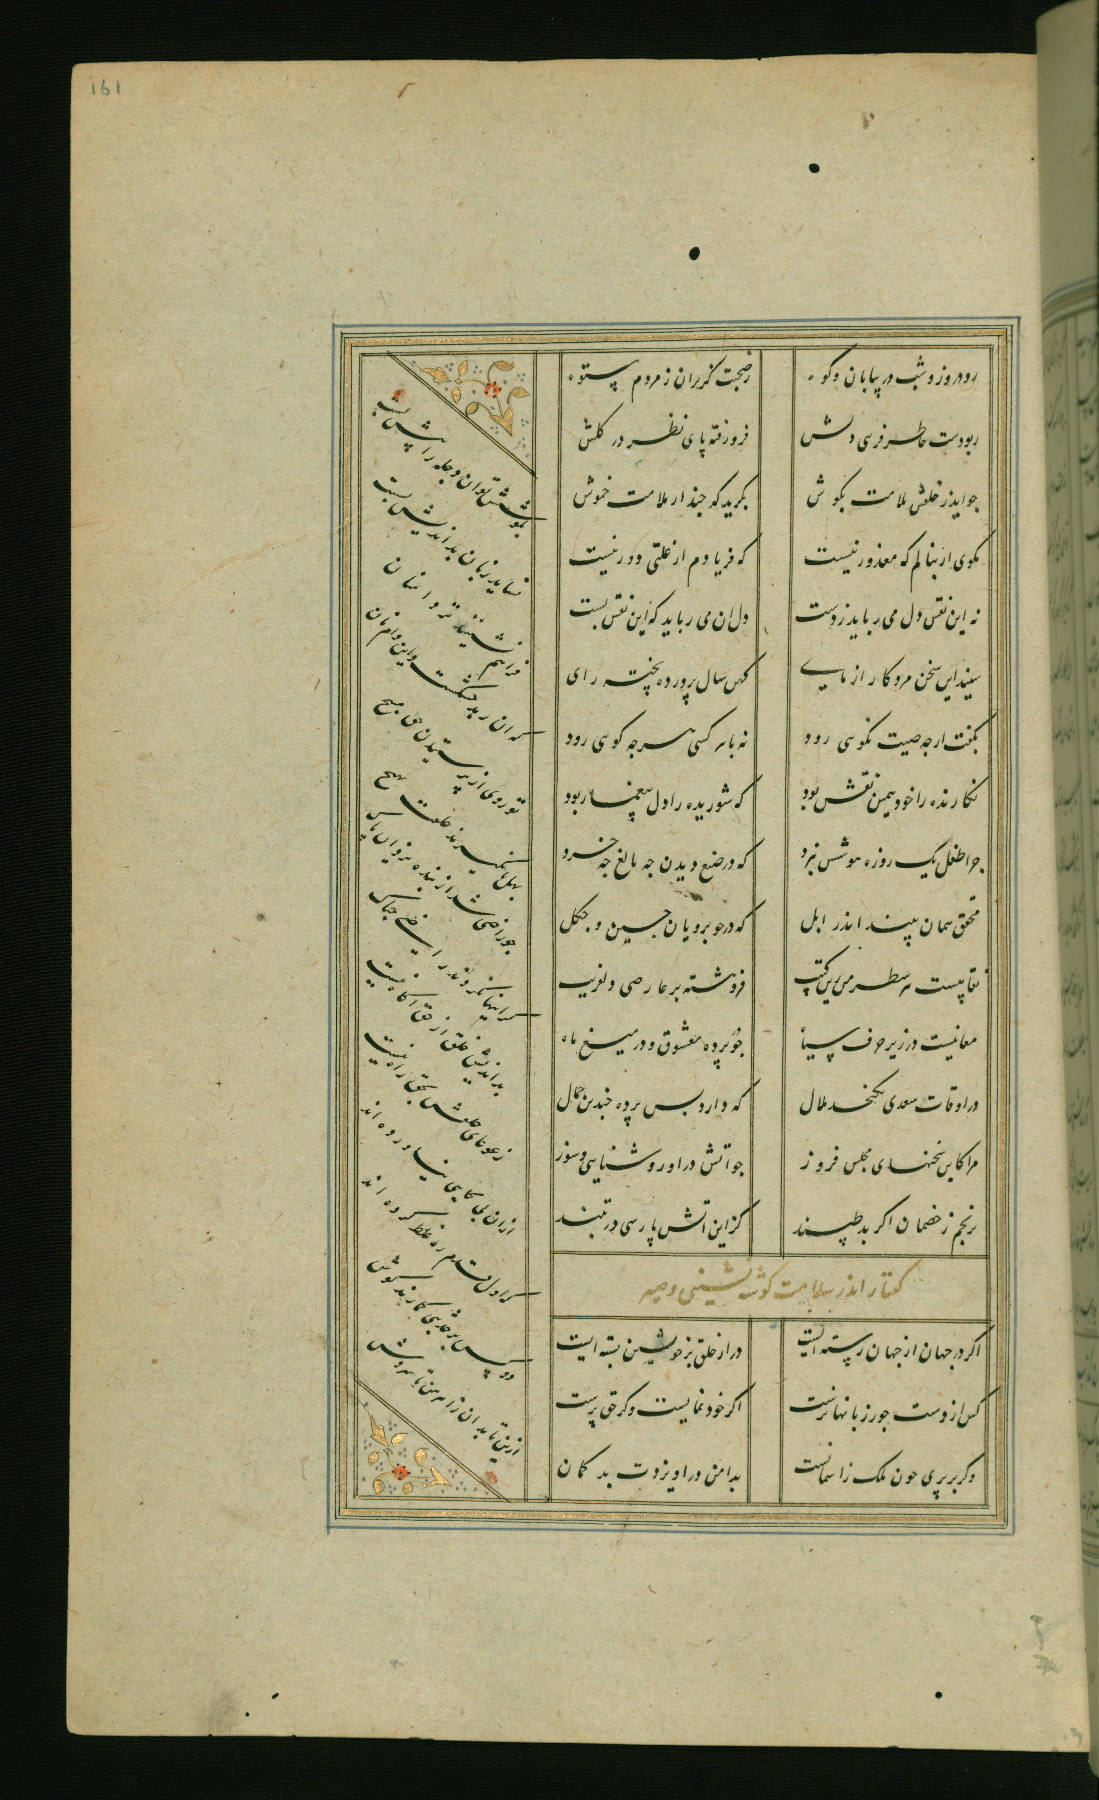 161
رود روز و شب در بیابان و کوه ز صحبت گریزان ز مردم ستوه
ربودست خاطر فریبی دلش فرو رفته پای نظر در گلش
چو آید ز خلقش ملامت بگوش بگرید که چند از ملامت خموش
مگوی ار بنالم که معذور نیست که فریادم از علتی دور نیست
نه این نقش دل می رباید ز دست دل آن می رباید که این نقش بست
شنید این سخن مرد کار ازمای کهن سال پرورده پخته رای
بگفت ار چه صیت نکویی رود نه با هر کسی هر چه گویی رود
نگارنده را خود همین نقش بود که شوریده را دل بیغما ربود
چرا طفل یک روزه هوشش نبرد که در صنع دیدن چه بالغ چه خرد
محقق همان بیند اندر ابل که در خوبرویان چین و چگل
نقابیست هر سطر من زین کتیب فرو هشته بر عارضی دلفریب
معانیست در زیر حرف سیاه چو در پرده معشوق و در میغ ماه
در اوقات سعدی نگنجد ملال که دارد پس پرده چندین جمال
مرا کاین سخنهای مجلس فروز چو آتش در او روشنایی و سوز
نرنجم ز خصمان اگر بر طپند کزین آتش پارسی در تبند
گفتار اندر سلامت گوشه نشینی و صبر
اگر در جهان از جهان رسته ایست در از خلق بر خویشتن بسته ایست
کس از دست جور زبانها نرست اگر خودنمایست و گر حق پرست
وگر بر پری چون ملک ز آسمان بدامن در آویزدت بد گمان
بکوشش توان دجله را پیش بست
نشاید زبان بداندیش بست
فراهم نشینند تر دامنان
که آن زهد خشکست و این دام نان
تو روی از پرستیدن حق مپیچ
بهل تا نگیرند خلقت بهیچ
چو راضی شد از بنده یزدان پاک
گر اینها نگردند راضی چه باک
بد اندیش خلق از حق آگاه نیست
ز غوغای خلقش بحق راه نیست
از آن پی بجایی نیاورده اند
که اول قدم ره غلط کرده اند
دو کس بر حدیثی گمارند گوش
ازین تا بدان ز اهرمن تا سروش